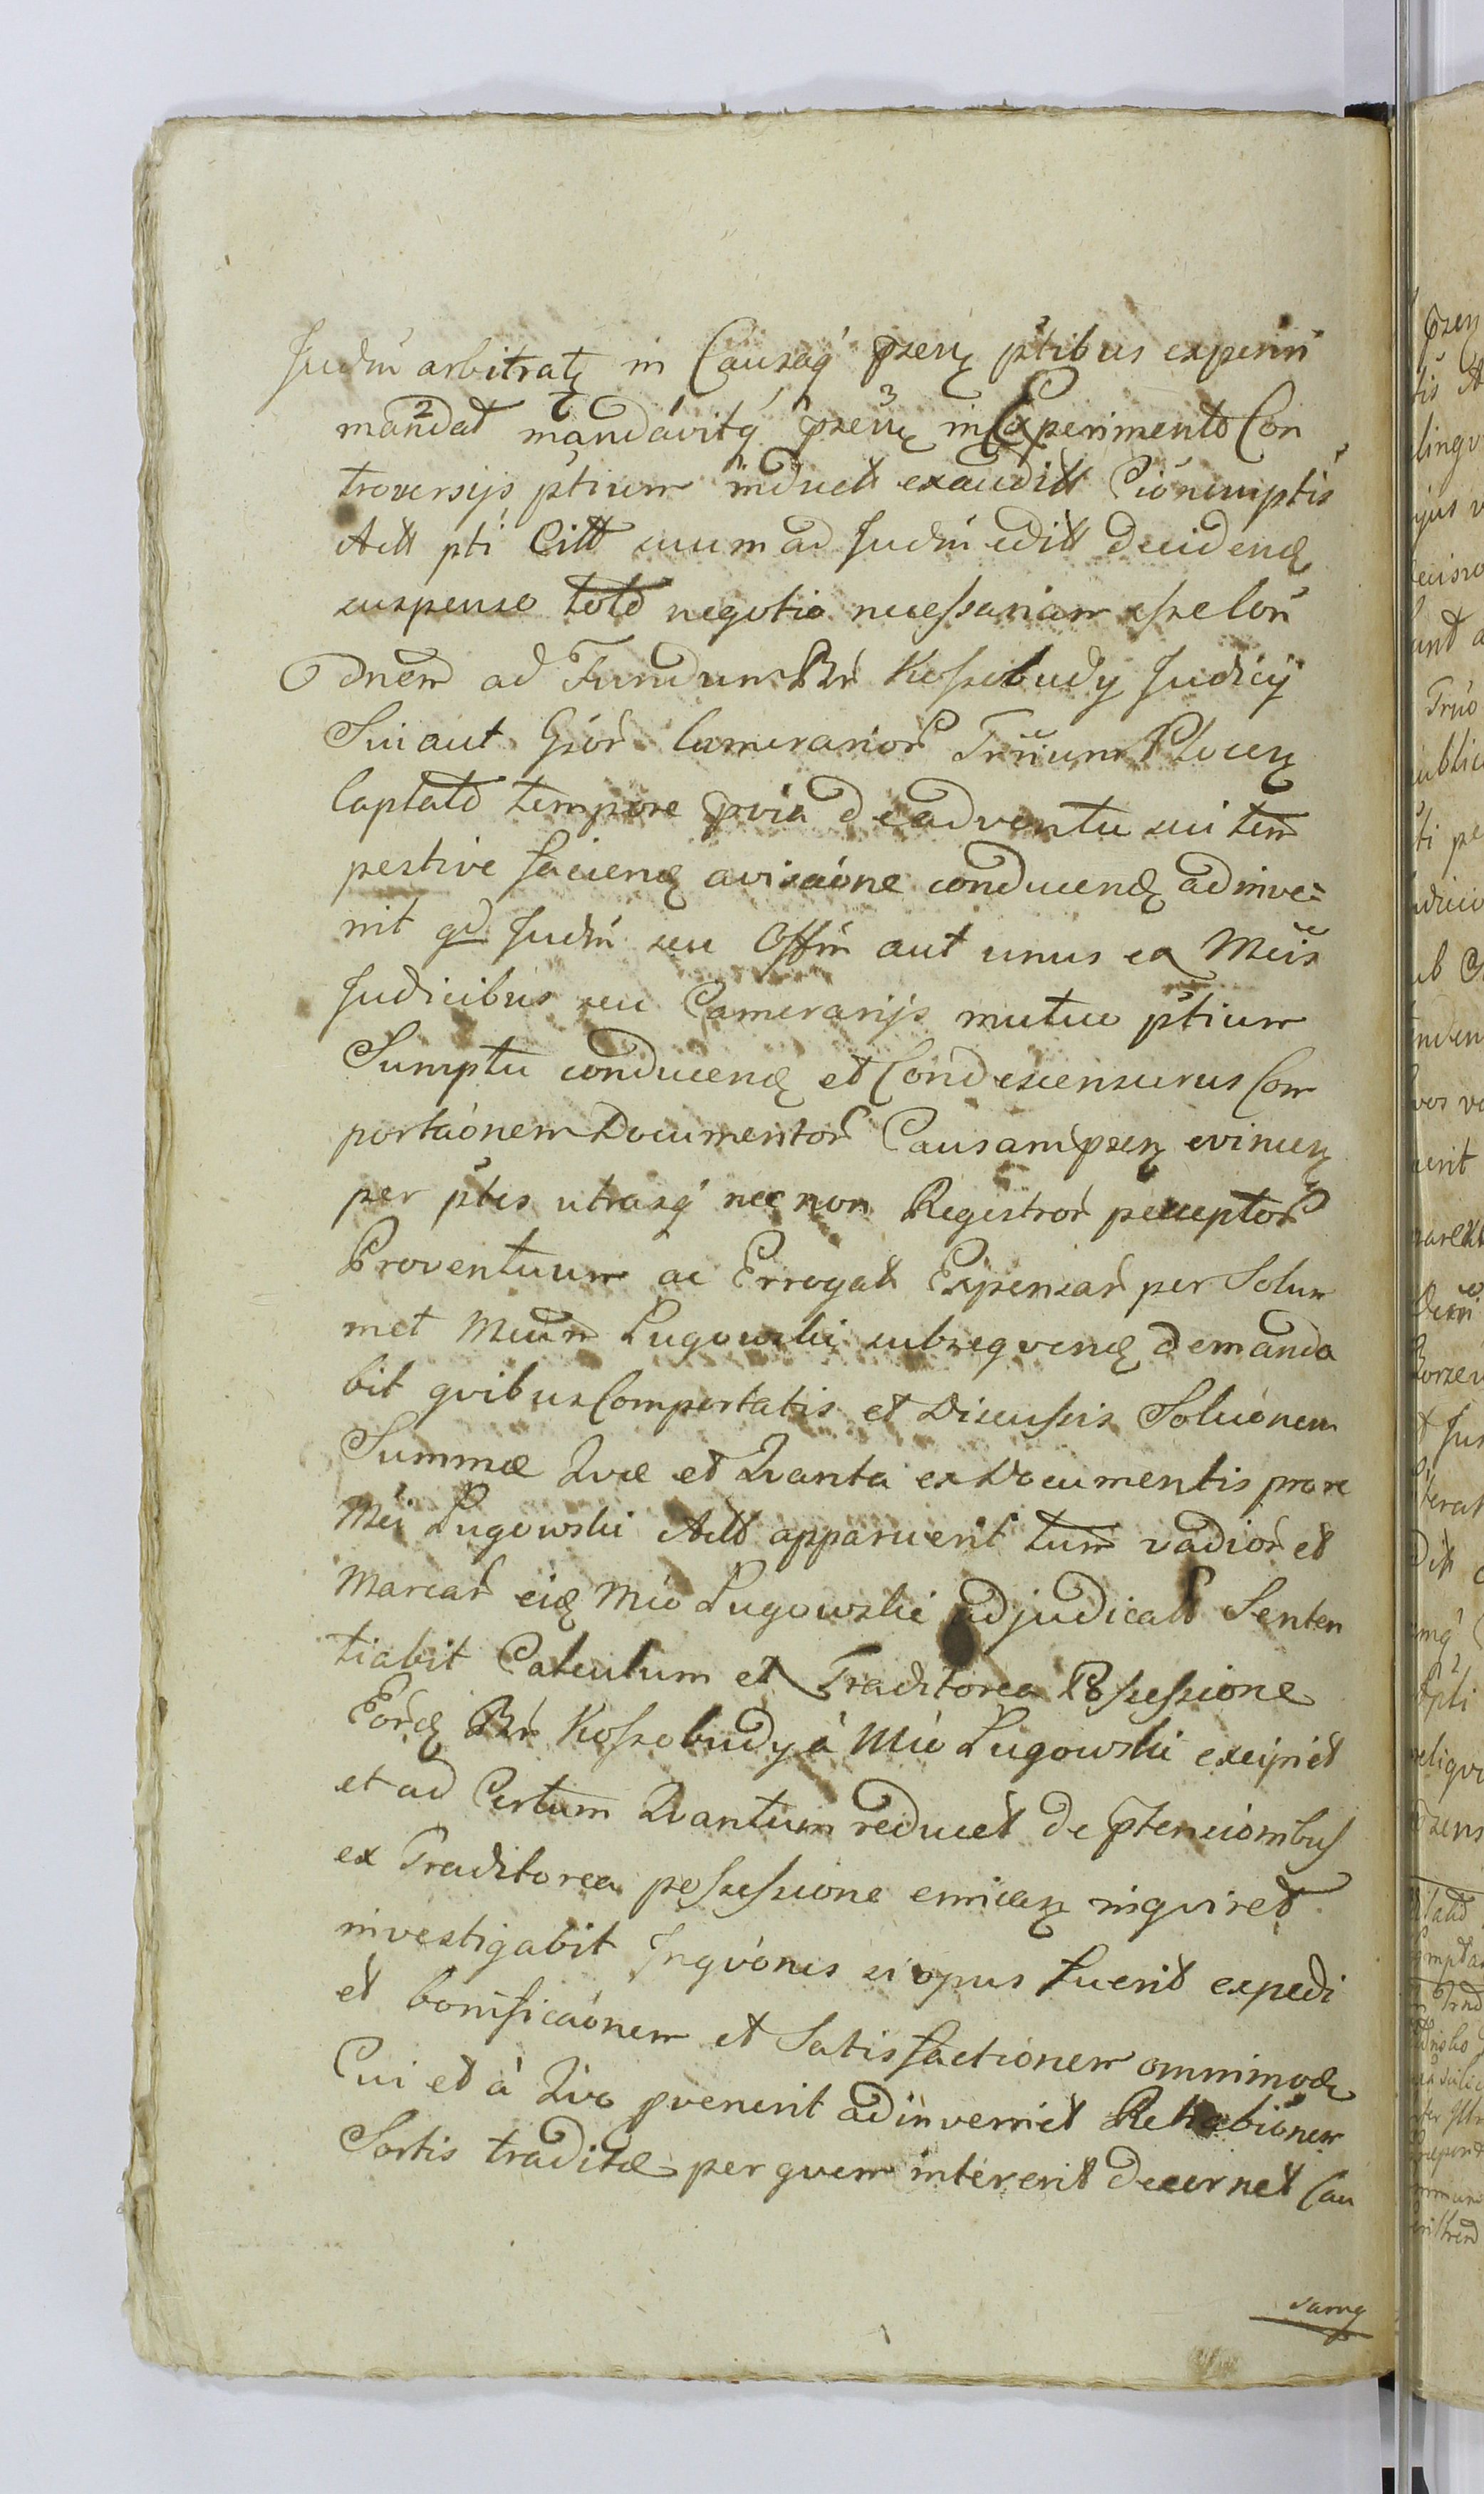 Judm̃ arbitratȝ in Causaq́ p̃senȝ p̃tibus experiri
mandat mandavitq́ p̃senȝ in Experimento Con
troversijs p̃tium induct exaudit Cióne muptis
Actt pti Citt suum ad Judm̃ edit decidend
suspenso toto negotio necessariam esse Con
dnem ad Fundum Bń Kossobudy Judicij
Sui aut Gsór Camerarior Trr̃ium Plocen
Captato tempore pvia de adventu sui tem
pestive faciend avisaóne conducend adinve=
nit qd Judm̃ seu Offm̃ aut unus ex Mcis
Judicibus seu Camerarijs mutuo p̃tium
Sumptu conducend et Condescensurus Com
portaónem Documentor Causam p̃senȝ evincen
per p̃tes utrasq́ nec non Registror perceptor
Proventuum ac Errogat Expensar per Solum
met Mcum Lugowski subsequend demanda
bit qvibus Comportatis et Discussis Soluónem
Summæ Qvæ et Qvanta ex Documentis pro re
Mci Lugowski Actt apparuerit tum vadior et
Marcar eid Mco Lugowski adjudicatt Senten
tiabit Calculum ex Traditorea Possessione
Eord Bń Kossobudy à Mco Lugowski excipiet
et ad Certum Qvantum reducet de ptensionibus
ex Traditorea possessione enricen inqviret
investigabit Inqvónes si opus fuerit expedi
et bonificaónem et Satisfactionem omnimod
Cui et à Qvo pvenerit adinveniet Rehabiónem
Sortis traditæ per quem intererit decernet Cau
samq